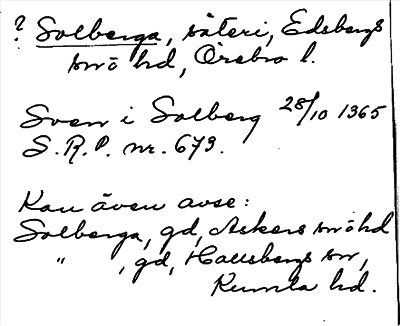 ? Solberga, säteri, Edsbergs
sn o hd, Örebro l.
Sven i Solberg 28/10 1365
S.R.P. nr. 673.
Kan även avse:
Solberga, gd, Askers sn o hd
" , gd, Hallsbergs sn,
Kumla hd.